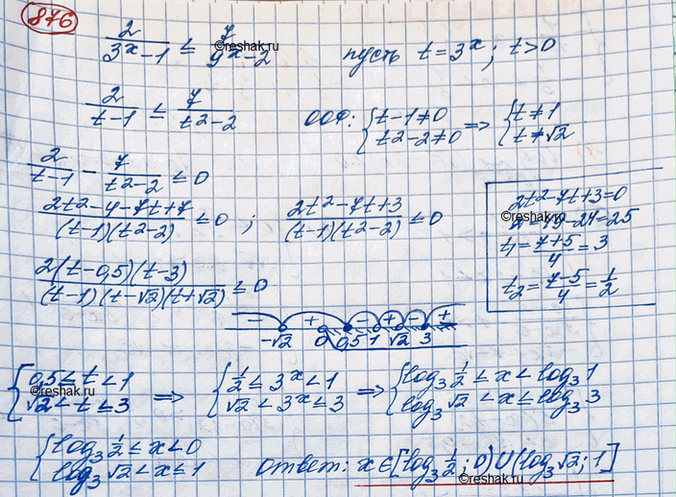 876
2/(3^x-1) ≤ 7/(9^x-2)    пусть t=3^x; t>0
©reshak.ru
2/(t-1) ≤ 7/(t²-2)    ООФ: {t-1≠0 t²-2≠0 => {t≠1 t≠√2
2/(t-1) - 7/(t²-2) ≤ 0
(2t²-4-7t+7)/((t-1)(t²-2)) ≤ 0 ; (2t²-7t+3)/((t-1)(t²-2)) ≤ 0
2t²-7t+3=0
©reshak.ru
=49-24=25
t₁=(7+5)/4=3
t₂=(7-5)/4=1/2
2(t-0,5)(t-3)/((t-1)(t-√2)(t+√2)) ≤ 0
- + - + - +
-√2 0 0,5 1 √2 3
{0,5≤t<1 √2<t≤3 => {1/2≤3^x<1 √2<3^x≤3 => {log₃1/2≤x<log₃1 log₃√2<x≤log₃3
©reshak.ru
{log₃1/2≤x<0 log₃√2<x≤1    ответ: x∈[log₃1/2;0)∪(log₃√2;1]
©reshak.ru